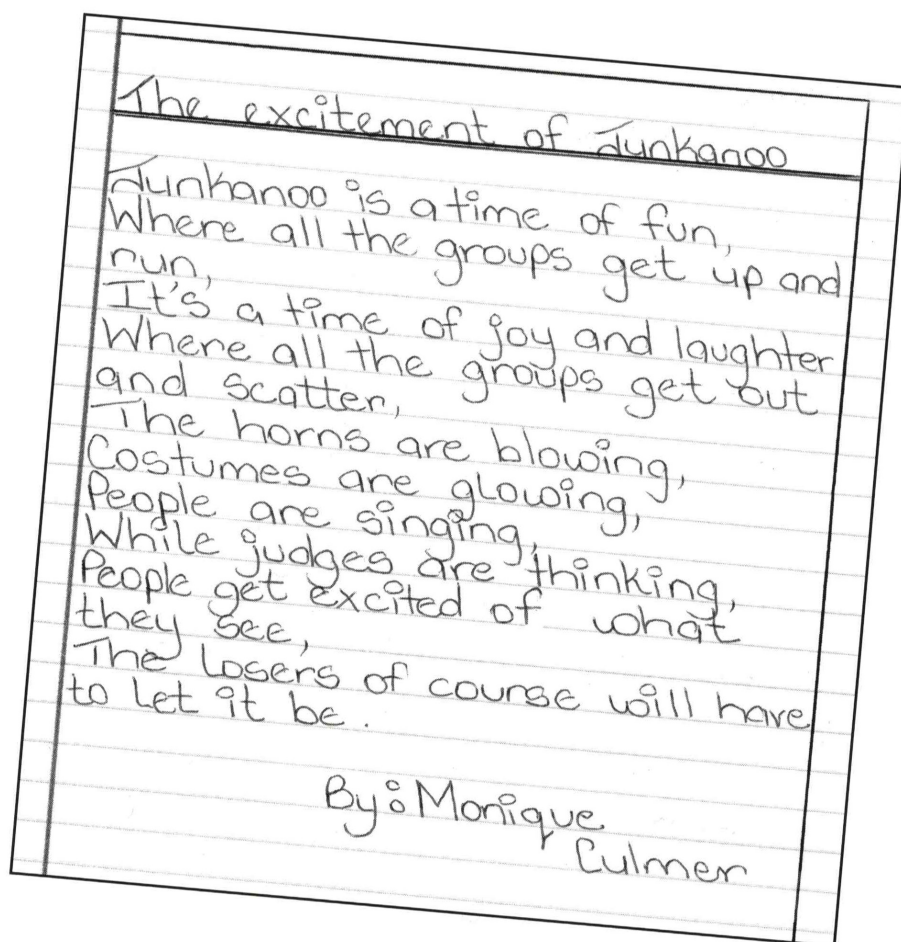 The excitement of Junkanoo
Junkanoo is a time of fun,
Where all the groups get up and
run,
It's a time of joy and laughter
Where all the groups get out
and scatter,
The horns are blowing,
Costumes are glowing,
People are singing,
While judges are thinking,
People get excited of what
they see,
The losers of course will have
to let it be.
By: Monique
Culmer